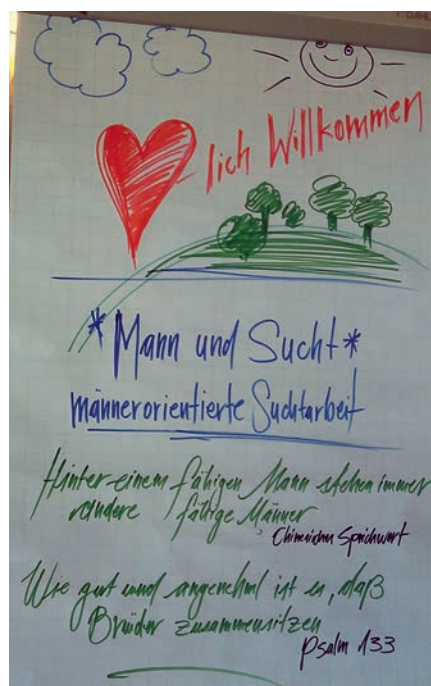 lich Willkommen
*Mann und Sucht*
männerorientierte Suchtarbeit
Hinter einem fähigen Mann stehen immer
andere fähige Männer
Sprichwort
Wie gut und angenehm ist es, daß
Brüder zusammensitzen
Psalm 133